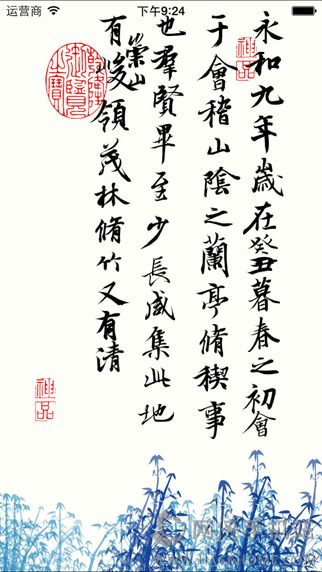 运营商 下午9:24
永和九年歲在癸丑暮春之初會
于會稽山陰之蘭亭脩稧事
也羣賢畢至少長咸集此地
有崇山峻領茂林脩竹又有清
神品
神品